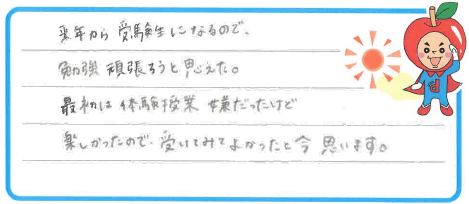 来年から 受験生になるので、
勉強 頑張ろうと思えた。
最初は 体験授業 嫌だったけど
楽しかったので、受けてみてよかったと今 思います。